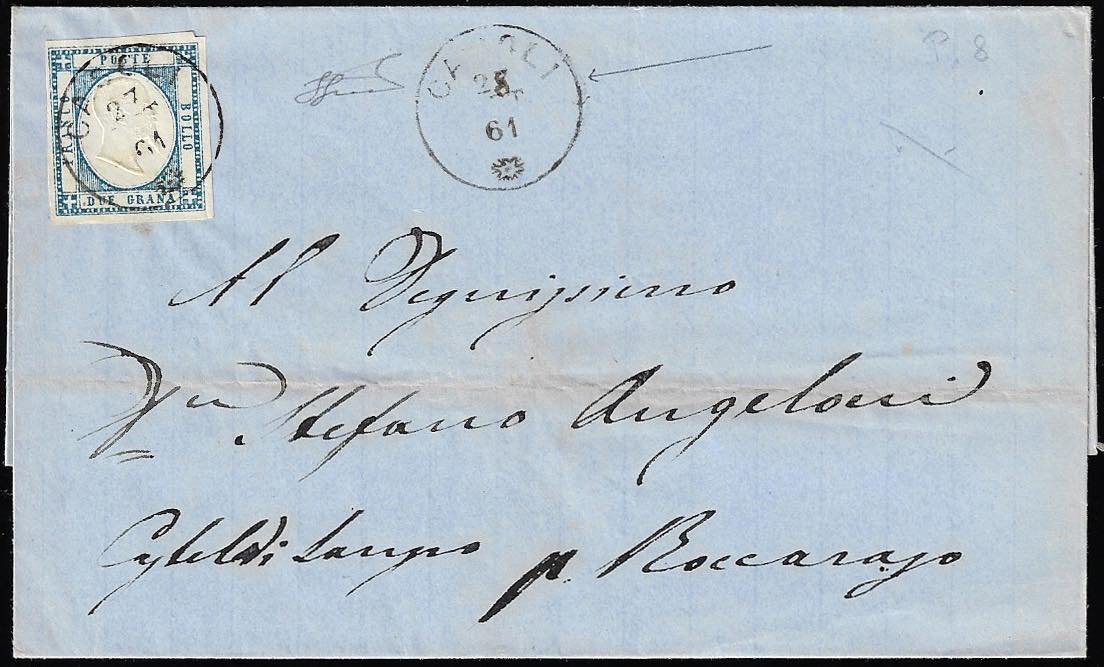 POSTE
FRANCO
BOLLO
DUE GRANA
61
28
61
P. 8
Al Degnissimo
Dn Stefano Angeloni
Casteldi Sangro p. Roccarajo